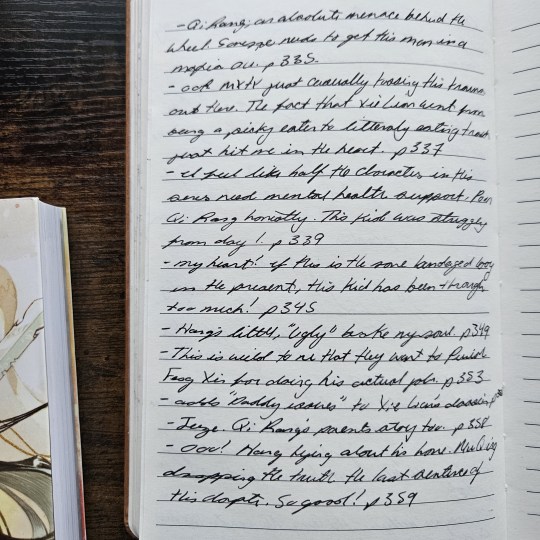 - Qi Rong; an absolute menace behind the
wheel. Someone needs to get this man in a
mafia au. p335.
- oof MXTX just casually tossing this trauma
out there. The fact that Xie Lian went from
being a picky eater to litteraly eating trash
just hit me in the heart. p337
- I feel like half the characters in this
series need mental health support. Poor
Qi Rong honestly. This kid was struggling
from day 1. p339
- my heart! if this is the same bandaged boy
in the present, this kid has been through
too much! p345
- Hong's little, "ugly" broke my soul p349
- This is wild to me that they want to punish
Feng Xin for doing his actual job. p353
- adds "Daddy issues" to Xie Lian's dossier
- Jeeze. Qi Rong's parents story too. p358
- oou! Hong lying about his home. Mu Qing
dropping the truth the last sentence of
this chapter. So good! p359